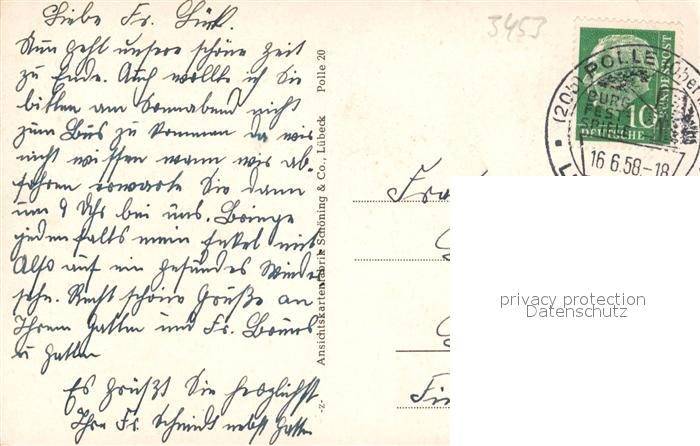 Liebe Fr. Lück.
Nun geht unsere schöne Zeit
zu Ende. Auch wollte ich Sie
bitten am Sonnabend nicht
zum Bus zu kommen da wir
nicht wissen wann wir ab-
fahren erwarte Sie dann
um 9 Uhr bei uns. Bringe
jedenfalls mein Enkel mit
Also auf ein gesundes Wieder
sehn. Recht schöne Grüße an
Ihrem Gatten und Fr. Bruns
u Gatten
Es grüßt Sie herzlichst
Ihre Fr. Schmidt nebst Gatten
Ansichtskartenfabrik Schöning & Co., Lübeck Polle 20
-z-
3453
DEUTSCHE BUNDESPOST
10
(20b) POLLE
BURG
FEST-
16.6.58.-18
Fra
privacy protection
Datenschutz